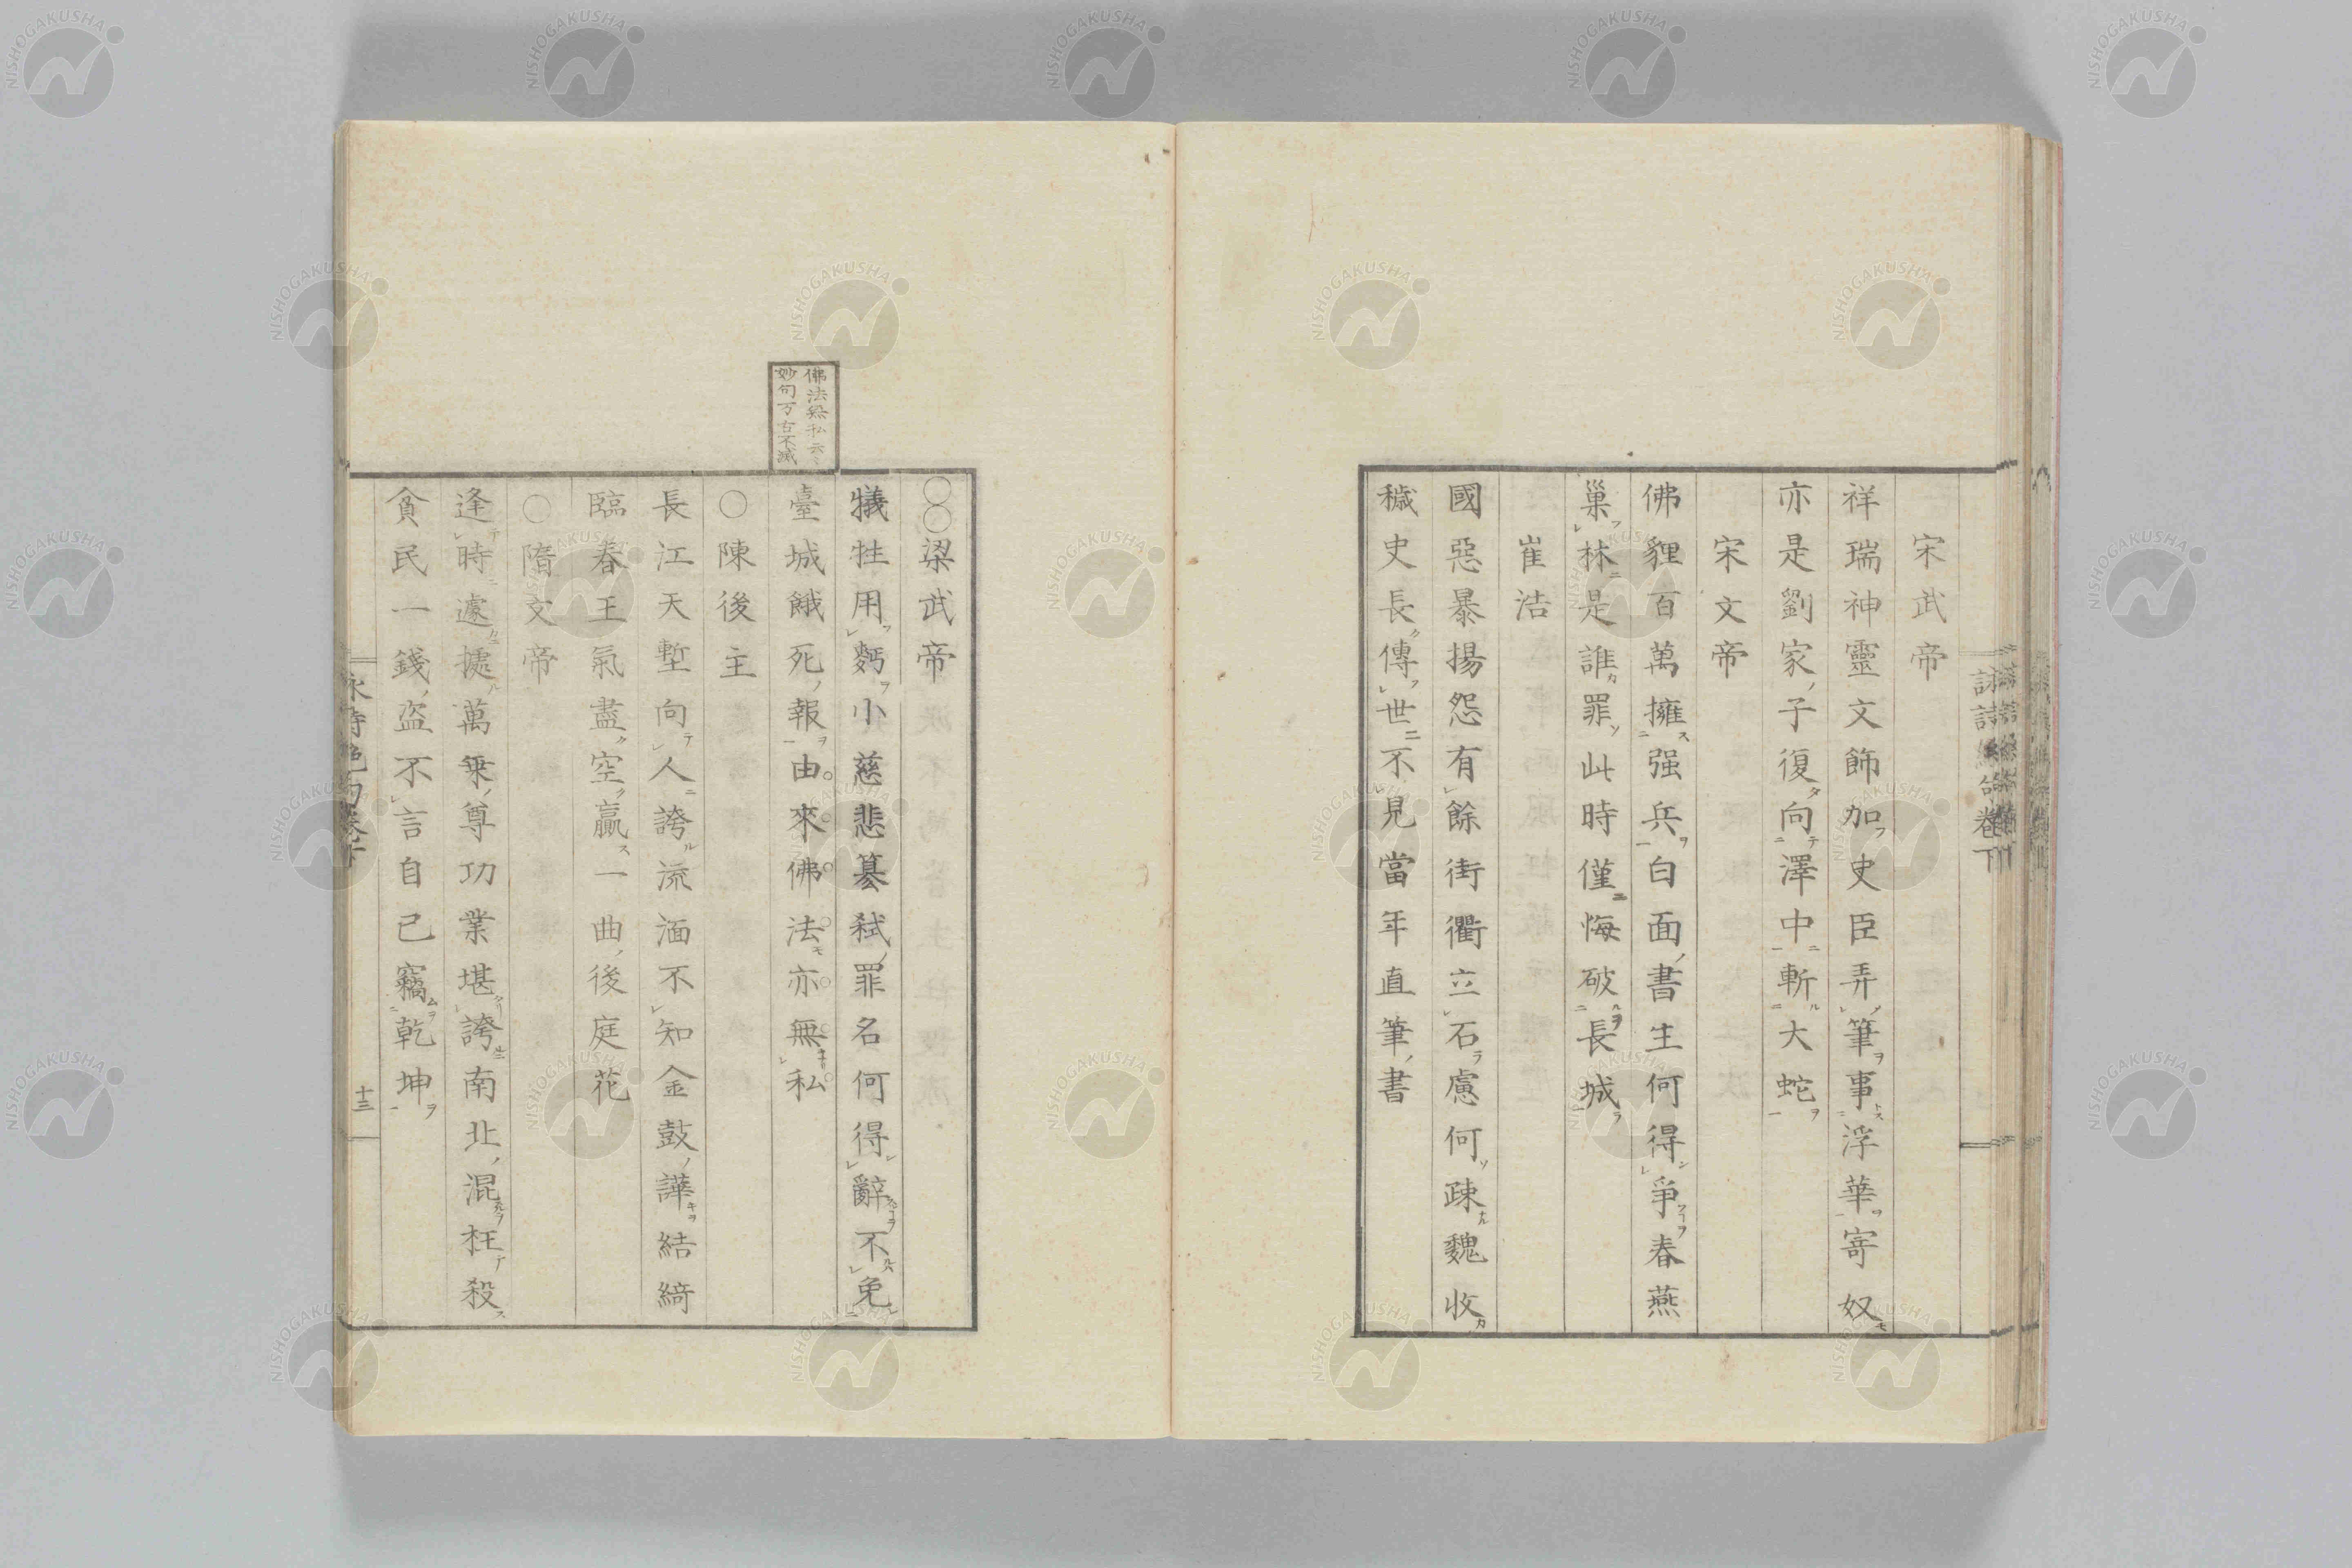 宋武帝
祥瑞神靈文飾加史臣弄筆事浮華寄奴
亦是劉家子復向澤中斬大蛇
宋文帝
佛貍百萬擁强兵白面書生何得爭春燕
巢林是誰罪此時僅悔破長城
崔浩
國惡暴揚怨有餘街衢立石慮何疎魏收
穢史長傳世不見當年直筆書
佛法無私云々
妙句万古不滅
〇〇梁武帝
犠牲用麪小慈悲簒弑罪名何得辭不免
臺城餓死報由來佛法亦無私
〇陳後主
長江天塹向人誇流湎不知金鼓譁結綺
臨春王氣盡空贏一曲後庭花
〇隋文帝
逢時遽據萬乘尊功業堪誇南北混枉殺
貧民一錢盗不言自己竊乾坤
十三